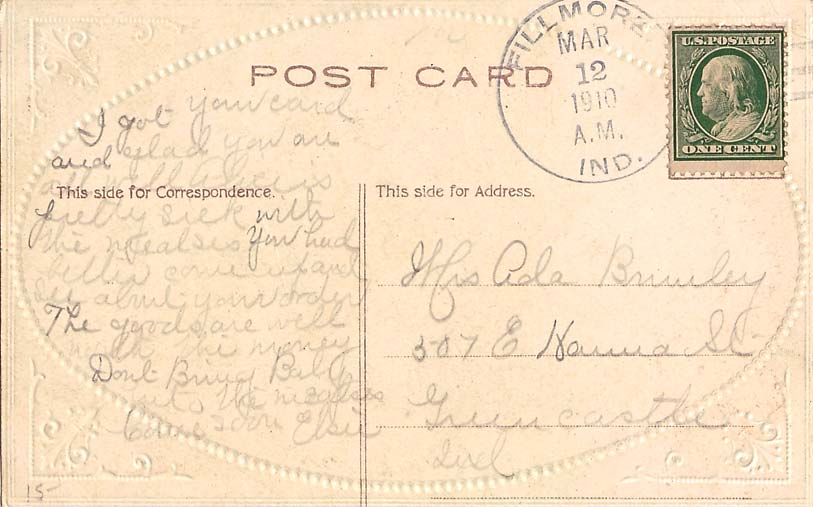 POST CARD
FILLMORE
MAR
12
1910
A.M.
IND.
U.S. POSTAGE
ONE CENT
I got your card
and glad you are
all well is
This side for Correspondence.
pretty sick with
the mealses You had
better come up and
see about your order
The goods are well
worth the money
Dont Bring Baby
out the measles
Come soon Elsie
15-
This side for Address.
Mrs Ada Brumley
507 E Hanna St-
Greencastle
Ind